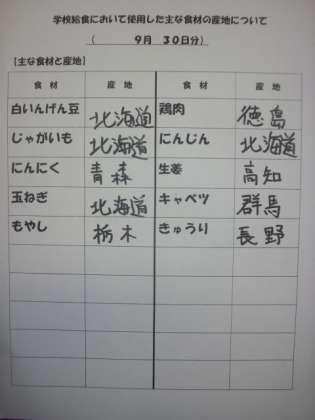 学校給食において使用した主な食材の産地について
( 9月 30日分)
【主な食材と産地】
食材 産地 食材 産地
白いんげん豆 北海道 鶏肉 徳島
じゃがいも 北海道 にんじん 北海道
にんにく 青森 生姜 高知
玉ねぎ 北海道 キャベツ 群馬
もやし 栃木 きゅうり 長野